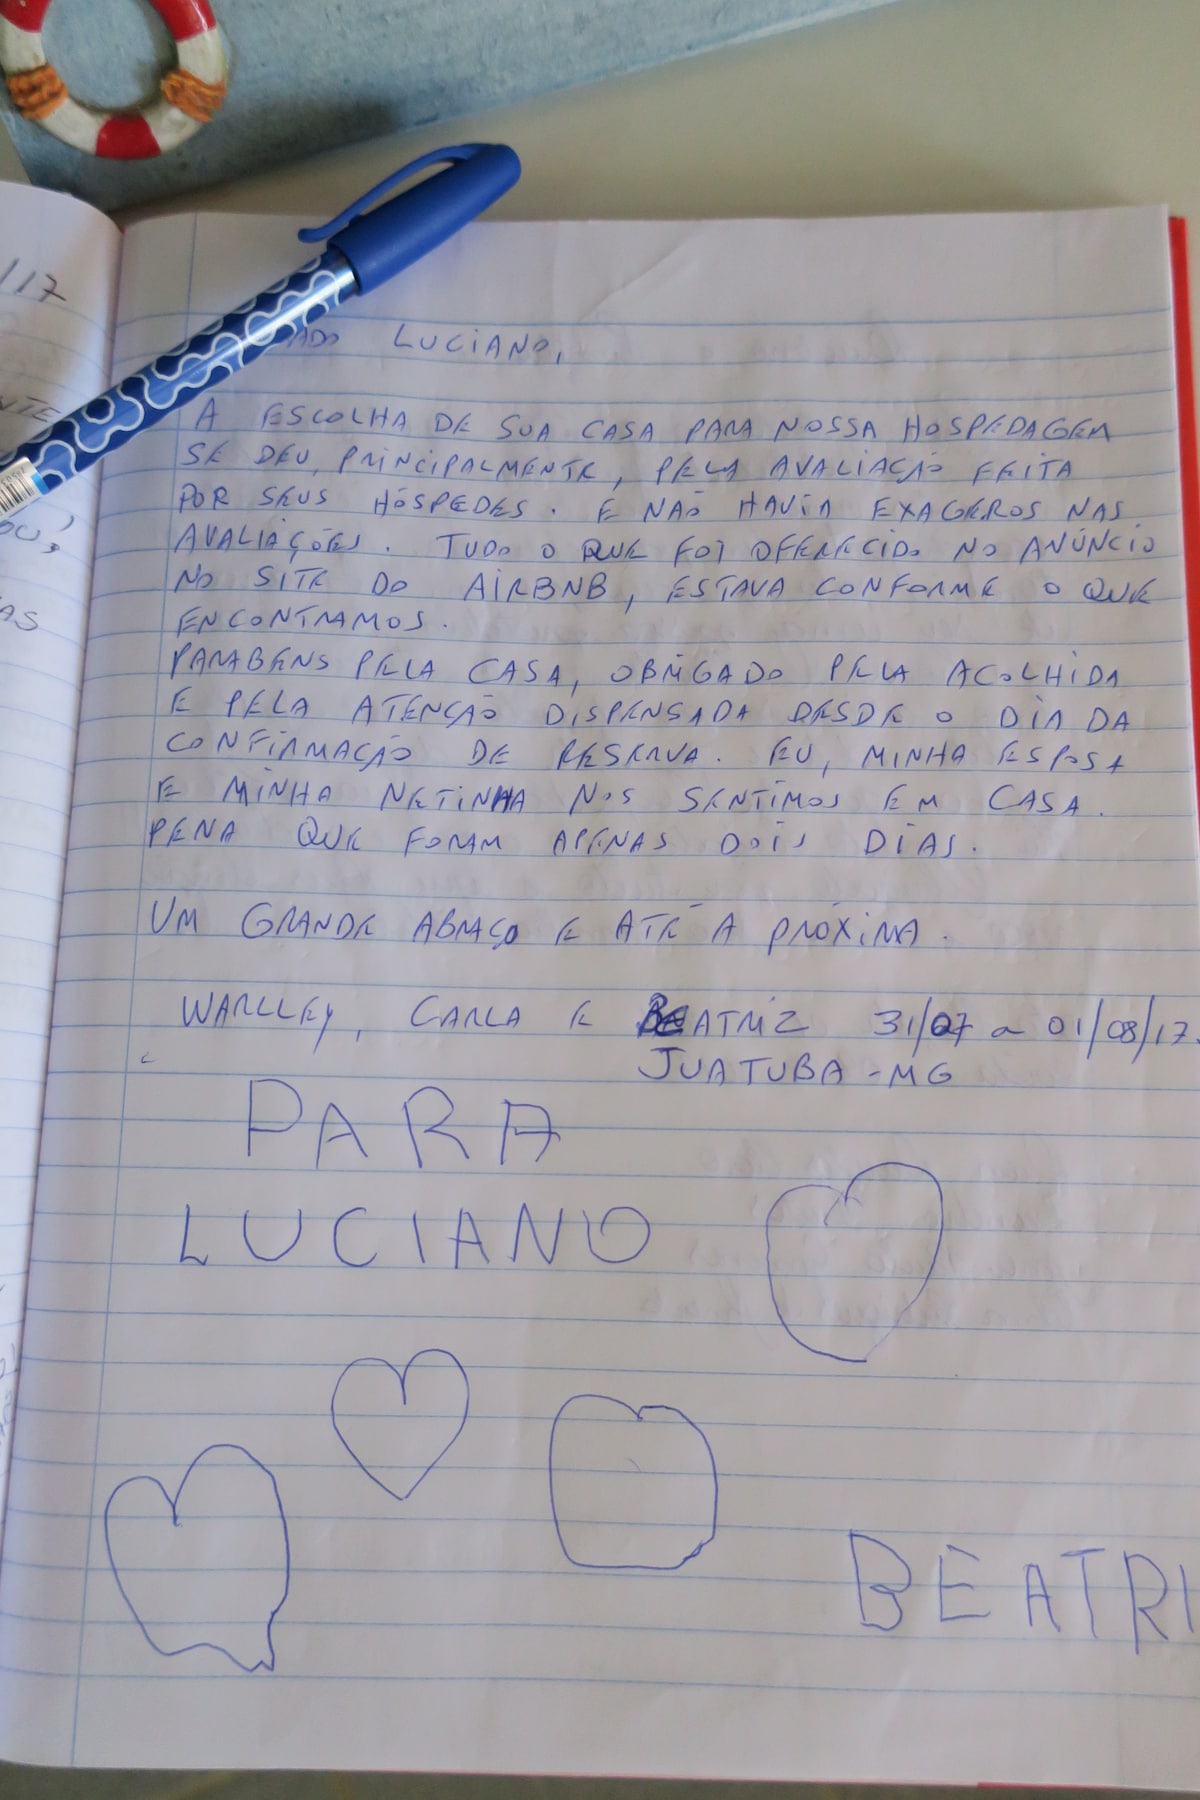 LUCIANO,
A ESCOLHA DE SUA CASA PARA NOSSA HOSPEDAGEM
SE DEU, PRINCIPALMENTE, PELA AVALIAÇÃO FEITA
POR SEUS HÓSPEDES. E NÃO HAVIA EXAGEROS NAS
AVALIAÇÕES. TUDO O QUE FOI OFERECIDO NO ANÚNCIO
NO SITE DO AIRBNB, ESTAVA CONFORME O QUE
ENCONTRAMOS.
PARABENS PELA CASA, OBRIGADO PELA ACOLHIDA
E PELA ATENÇÃO DISPENSADA DESDE O DIA DA
CONFIRMAÇÃO DE RESERVA. EU, MINHA ESPOSA
E MINHA NETINHA NOS SENTIMOS EM CASA.
PENA QUE FORAM APENAS DOIS DIAS.
UM GRANDE ABRAÇO E ATÉ A PRÓXIMA.
WARLLEY, CARLA E BEATRIZ 31/07 a 01/08/17.
JUATUBA - MG
PARA
LUCIANO
BEATRI